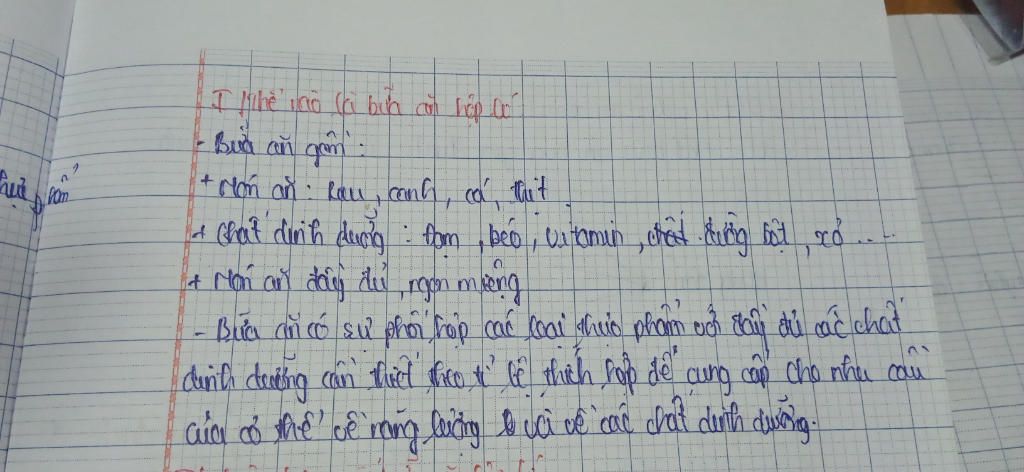 I Thế nào là bữa ăn hợp lí
- Bữa ăn gồm:
+ Món ăn: Rau, canh, cá, thịt
+ Chất dinh dưỡng: đạm, béo, vitamin, chất đường bột, xơ ....
+ Món ăn đầy đủ, ngon miệng
- Bữa ăn có sự phối hợp các loại thực phẩm với đầy đủ các chất
dinh dưỡng cần thiết theo tỉ lệ thích hợp để cung cấp cho nhu cầu
của cơ thể về năng lượng và về các chất dinh dưỡng.